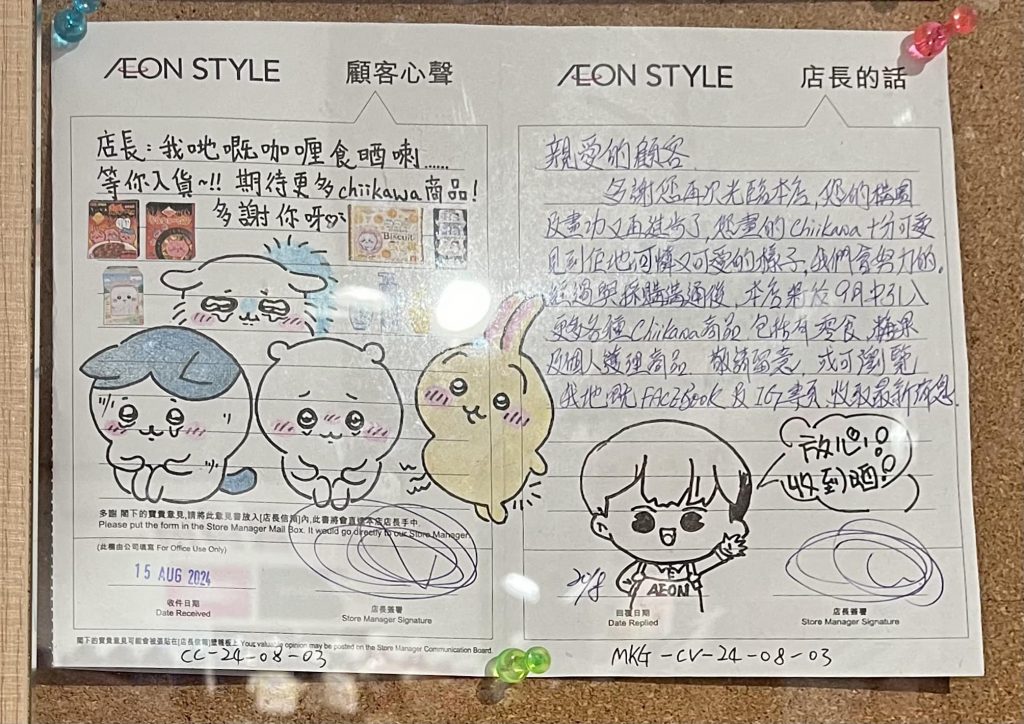 ÆON STYLE 顧客心聲
店長：我哋嘅咖喱食晒喇......
等你入貨~!! 期待更多chiikawa商品!
多謝你呀♡
Biscuit
多謝 閣下的寶貴意見,請將此意見書放入[店長信箱]內,此書將會直達本店店長手中
Please put the form in the Store Manager Mail Box. It would go directly to our Store Manager.
(此欄由公司填寫 For Office Use Only)
15 AUG 2024
收件日期
Date Received
店長簽署
Store Manager Signature
閣下的寶貴意見可能會被張貼在[店長信箱]壁報板上 Your valuable opinion may be posted on the Store Manager Communication Board.
CC-24-08-03
ÆON STYLE 店長的話
親愛的顧客
多謝您再次光臨本店,您的構圖
及畫功又再進步了,您畫的Chiikawa十分可愛
見到佢地可憐又可愛的樣子,我們會努力的.
經過與採購溝通後,本店將於9月中引入
更多各種Chiikawa商品 包括有零食,糖果
及個人護理商品 敬請留意,或可瀏覽
我地嘅FACEBOOK及IG專頁,收取最新信息.
放心!
收到晒!
AEON
20/8
回覆日期
Date Replied
店長簽署
Store Manager Signature
MKG-CV-24-08-03